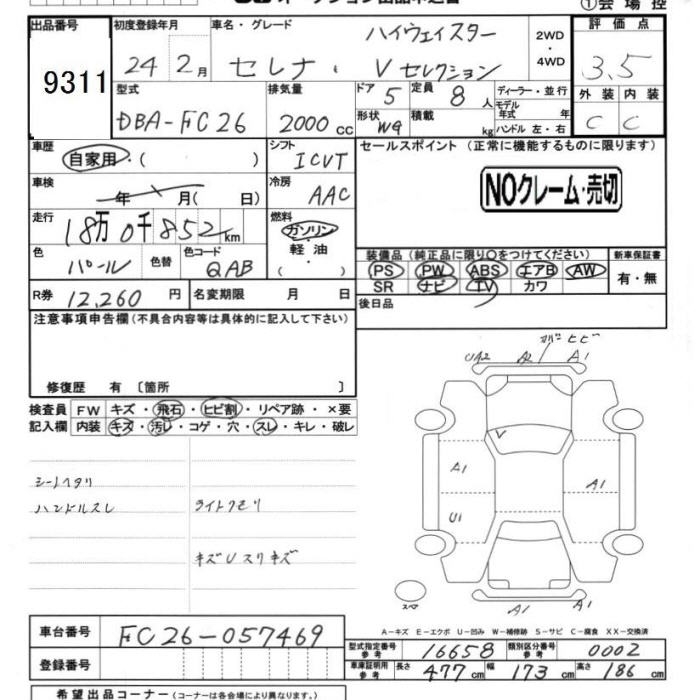 オークション出品申込書
①会場控
出品番号 9311
初度登録年月 24 2月
車名・グレード ハイウェイスター
セレナ Vセレクション
2WD・4WD
評価点 3.5
外装 C 内装 C
型式 DBA-FC26
排気量 2000cc
ドア 5 定員 8人
形状 WG 積載 kg
ディーラー・並行
モデル年式 年
ハンドル 左・右
車歴 自家用・( )
シフト ICVT
セールスポイント (正常に機能するものに限ります)
NOクレーム・売切
車検 年 月(日)
冷房 AAC
走行 18万0千852km
燃料 ガソリン・軽油・( )
色 パール 色替 色コード QAB
装備品 (純正品に限り○をつけてください) 新車保証書
PS PW ABS エアB AW 有・無
SR ナビ TV カワ
R券 12,260円 名変期限 月 日
後日品
注意事項申告欄 (不具合内容等は具体的に記入して下さい)
修復歴 有 〔箇所 〕
検査員記入欄
FW キズ・飛石・ヒビ割・リペア跡・×要
内装 キズ・汚レ・コゲ・穴・スレ・キレ・破レ
シートヘタリ
ハンドルスレ ライトクモリ
キズUスリキズ
ヒビ
UA2 A2 A1
V
A1 A1
U1
スペア
A-キズ E-エクボ U-凹み W-補修跡 S-サビ C-腐食 XX-交換済
車台番号 FC26-057469
登録番号
型式指定番号参考 16658 類別区分番号参考 0002
車庫証明用参考 長さ 477cm 幅 173cm 高さ 186cm
希望出品コーナー (コーナーは各会場により異なります。)